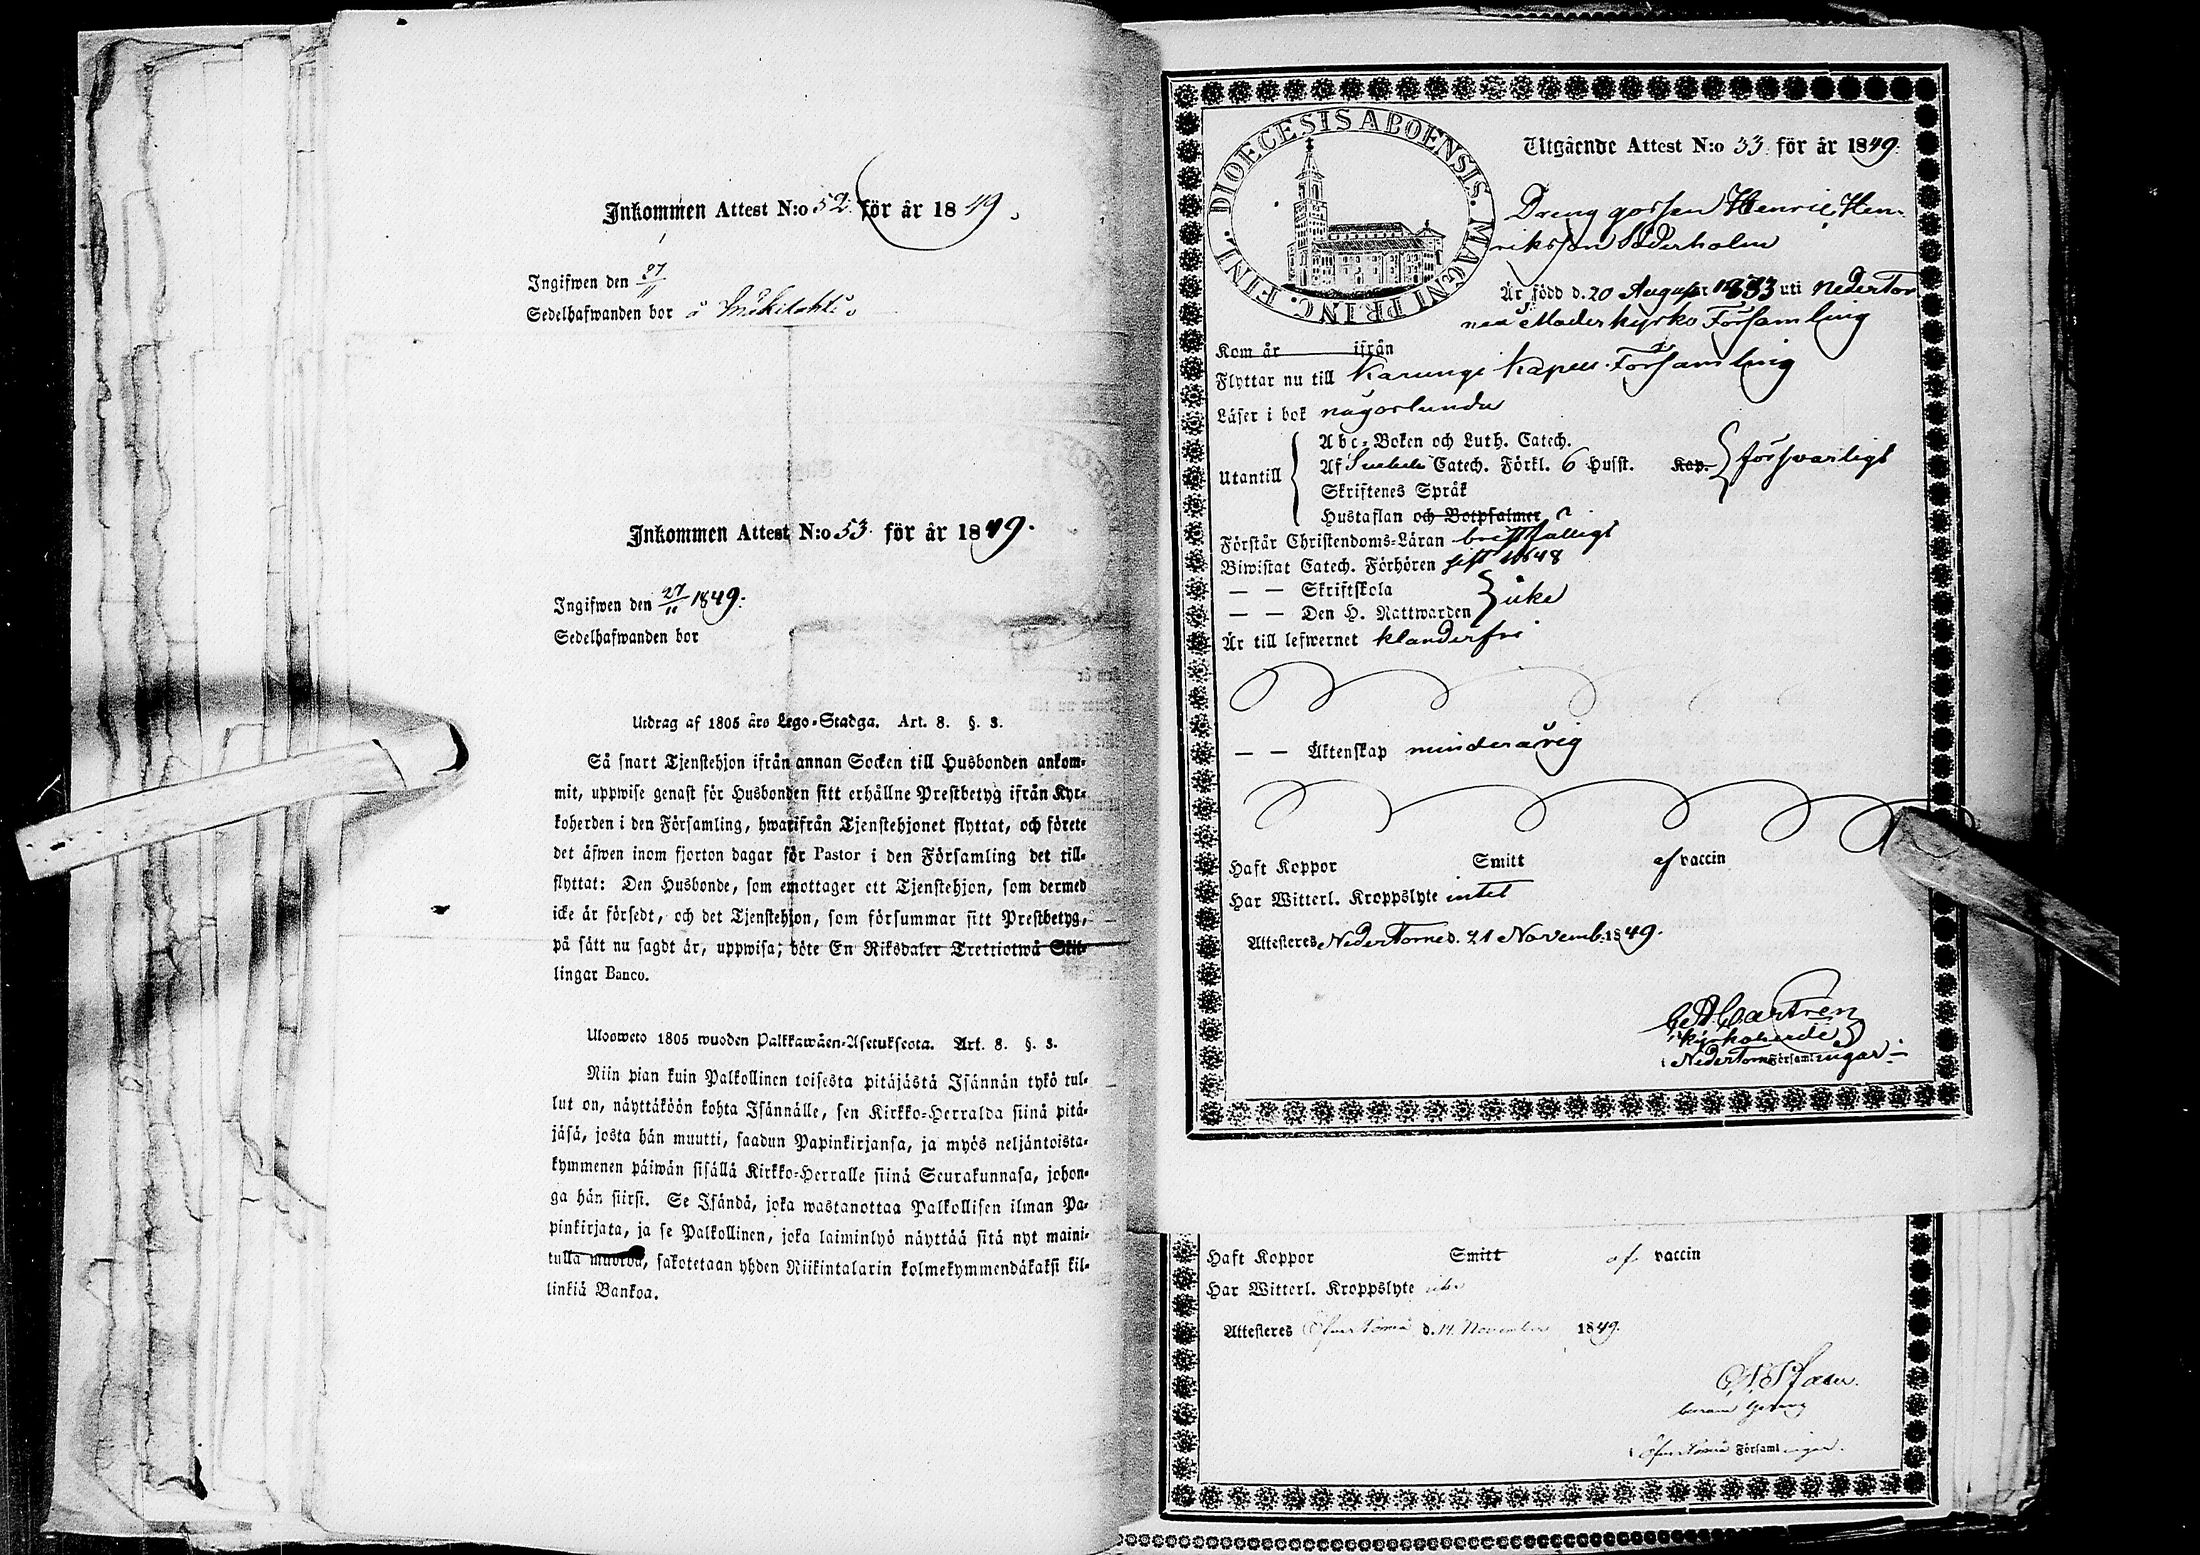 Inkommen Attest N:o 52. för år 1849.
Ingifwen den 27/11
Sedelhafwanden bor å
Inkommen Attest N:o 53. för år 1849.
Ingifwen den 27/11 1849.
Sedelhafwanden bor
Utdrag af 1805 års Lego-Stadga. Art. 8. §. 3.
Så snart Tjenstehjon ifrån annan Socken till Husbonden ankom-
mit, uppwise genast för Husbonden sitt erhållne Prestbetyg ifrån Kyr-
koherden i den Församling, hwarifrån Tjenstehjonet flyttat, och förete
det äfwen inom fjorton dagar för Pastor i den Församling det till-
flyttat: Den Husbonde, som emottager ett Tjenstehjon, som dermed
icke är försedt, och det Tjenstehjon, som försummar sitt Prestbetyg,
på sätt nu sagdt är, uppwisa, böte En Riksdaler Trettiotwå Skil-
lingar Banco.
Ulosweto 1805 wuoden Palkkawäen-Asetuksesta. Art. 8. §. 3.
Niin pian kuin Palkollinen toisesta pitäjästä Isännän tykö tul-
lut on, näyttäköön kohta Isännälle, sen Kirkko-Herralda siinä pitä-
jäsä, josta hän muutti, saadun Papinkirjansa, ja myös neljäntoista-
kymmenen päiwän sisällä Kirkko-Herralle siinä Seurakunnasa, johon-
ga hän siirsi. Se Isändä, joka wastanottaa Palkollisen ilman Pa-
pinkirjata, ja se Palkollinen, joka laiminlyö näyttää sitä nyt maini-
tulla muodoa, sakotetaan yhden Riikintalarin kolmekymmendäkaksi kil-
linkiä Bankoa.
DIOECESIS ABOENSIS. MAGNI PRINC. FINL.
Utgående Attest N:o 53. för år 1849.
Dreng gossen Henric Hen-
riksson Söderholm
Är född d. 20 August 1833 uti Neder Tor
neå Moderkyrko Församling
Kom år ifrån
Flyttar nu till Karungi Kapell Församling
Läser i bok någorlunda
Utantill
Abc-Boken och Luth. Catech.
Af Svebeli Catech. Förkl. 6 Husst. Kap. försvarligt
Skriftenes Språk
Hustaflan och Botpsalmer
Förstår Christendoms-Läran bristfälligt
Biwistat Catech. Förhören sist 1848
— — Skriftskola
— — Den H. Nattwarden icke
Är till lefwernet klanderfri
— — Äktenskap minderårig
Haft Koppor Smitt af vaccin
Har Witterl. Kroppslyte intet
Attesteres Neder Torneå d. 21 Novemb. 1849.
Castrén
Kyrkoherde
i Neder Torneå Församlingar
Haft Koppor Smitt af vaccin
Har Witterl. Kroppslyte
Attesteres Öfver Torneå d. 14 November 1849.
i Öfver Torneå Församlingar.